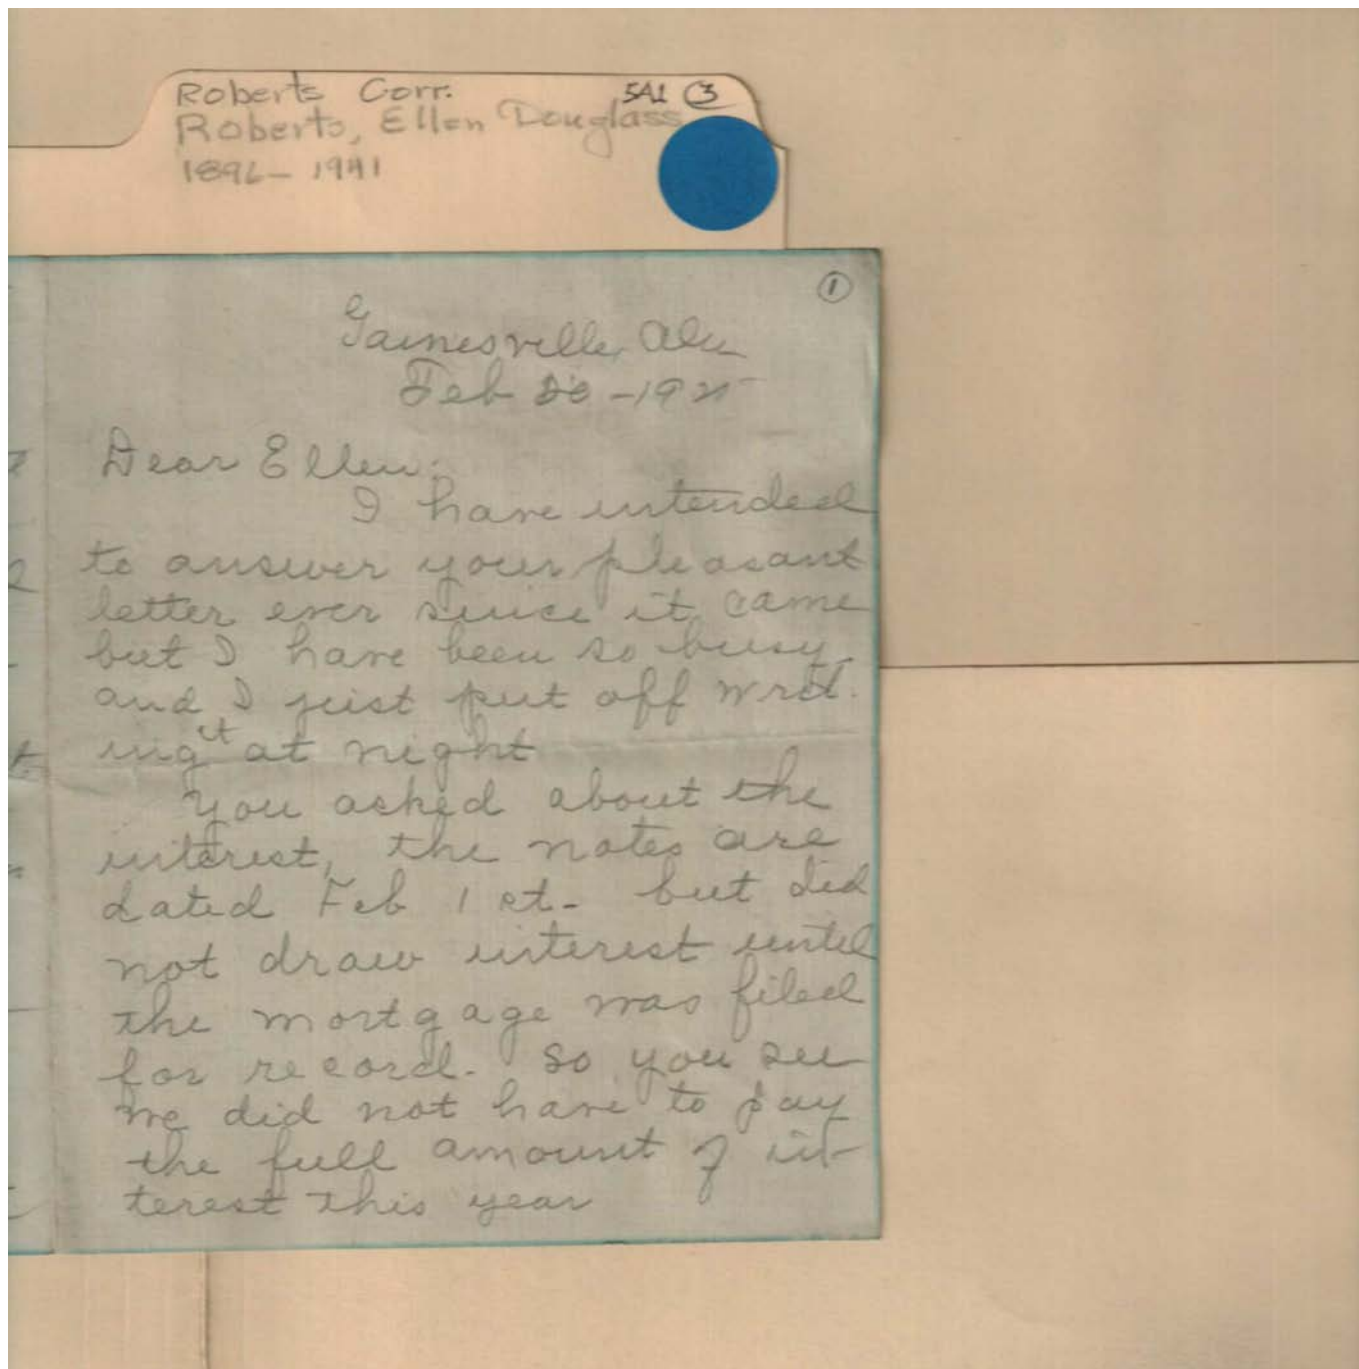 Roberts Corr. 5A1 3
Roberts, Ellen Douglass
1896-1941
1
Gainesville, Ala
Feb
Dear Ellen:
I have intended
to answer your pleasant
letter ever since it came
but I have been so busy
and I just put off writ-
ing it at night
You asked about the
interest, the notes are
dated Feb 1 st- but did
not draw interest until
the mortgage was filed
for record. So you see
we did not have to pay
the full amount of in-
terest this year